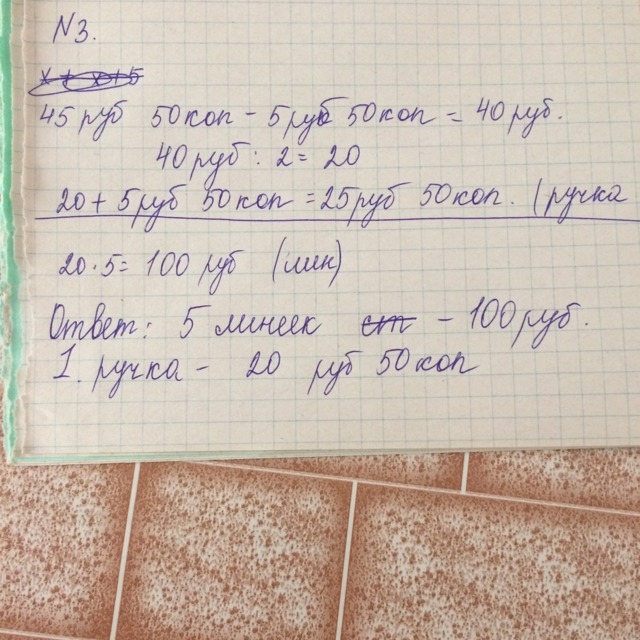 N3.
45 руб 50 коп - 5 руб 50 коп = 40 руб.
40 руб : 2 = 20
20 + 5 руб 50 коп = 25 руб 50 коп. (ручка
20 · 5 = 100 руб (лин)
Ответ: 5 линеек ст - 100 руб.
1. ручка - 20 руб 50 коп